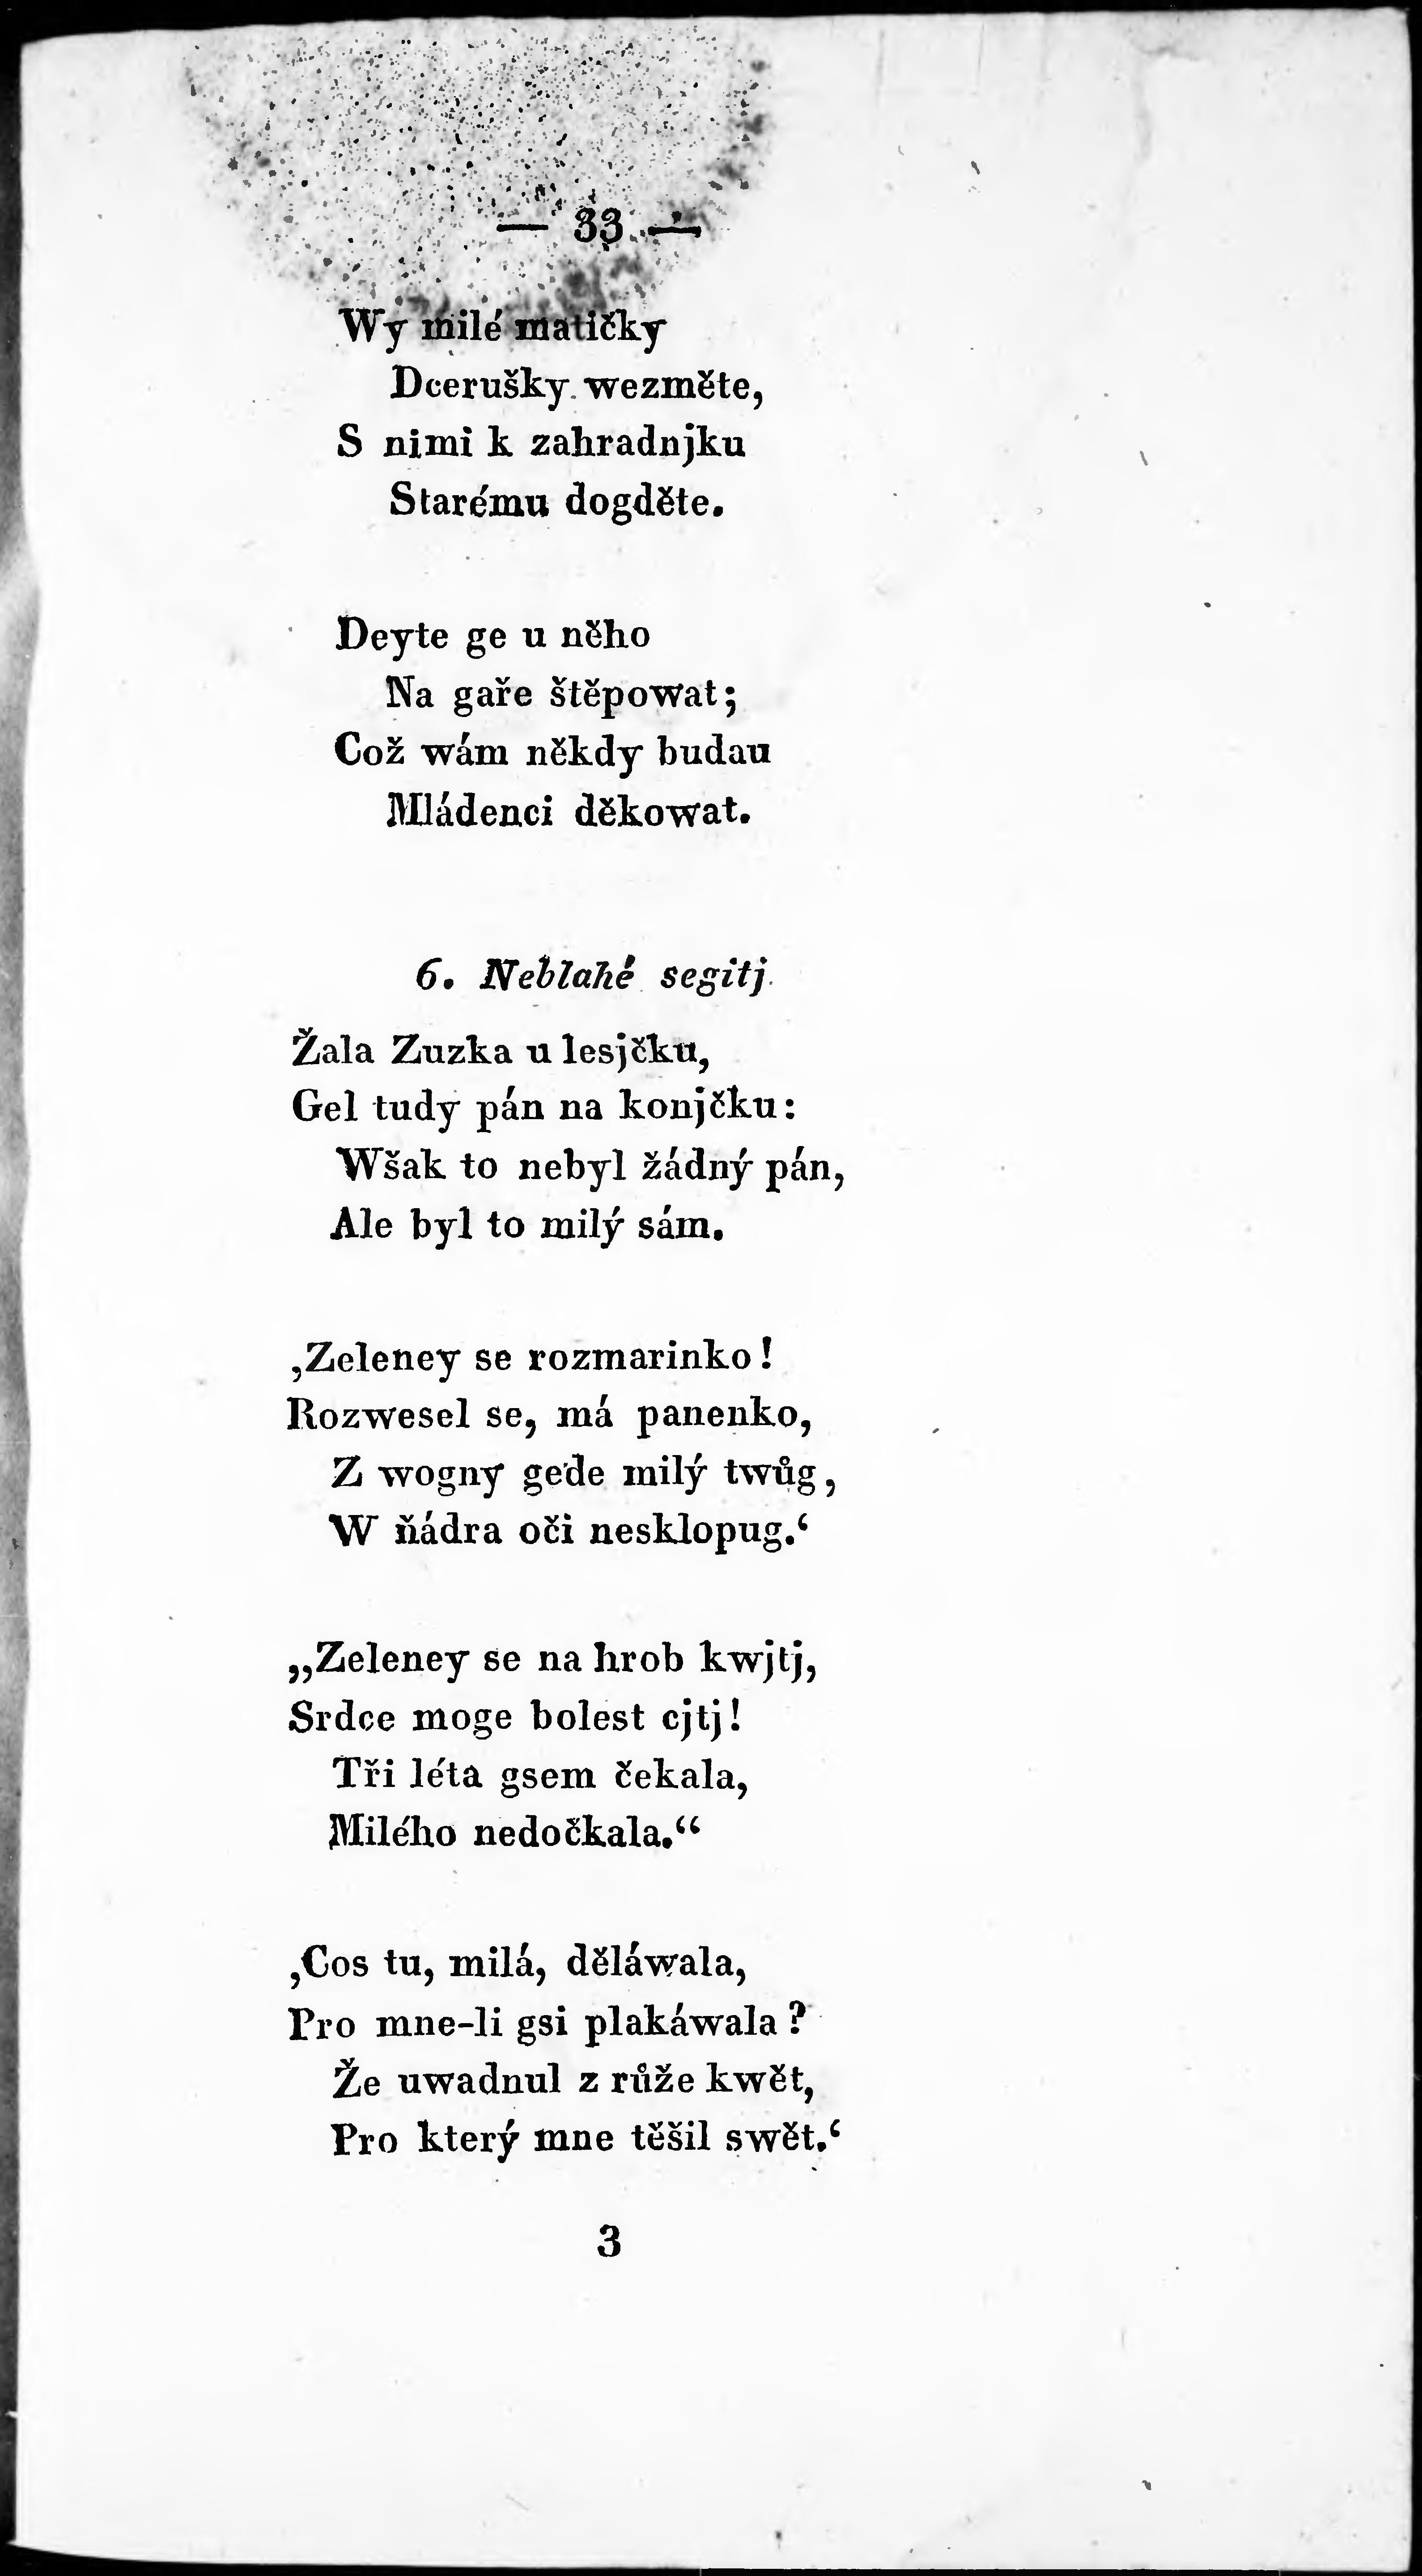 — 33 —
Wy milé matičky
Dcerušky wezměte,
S nimi k zahradnjku
Starému dogděte.
Deyte ge u něho
Na gaře štěpowat;
Což wám někdy budau
Mládenci děkowat.
6. Neblahé segitj
Žala Zuzka u lesjčku,
Gel tudy pán na konjčku:
Wšak to nebyl žádný pán,
Ale byl to milý sám.
‚Zeleney se rozmarinko!
Rozwesel se, má panenko,
Z wogny gede milý twůg,
W ňádra oči nesklopug.‘
„Zeleney se na hrob kwjtj,
Srdce moge bolest cjtj!
Tři léta gsem čekala,
Milého nedočkala.“
‚Cos tu, milá, děláwala,
Pro mne-li gsi plakáwala?
Že uwadnul z růže kwět,
Pro který mne těšil swět.‘
3